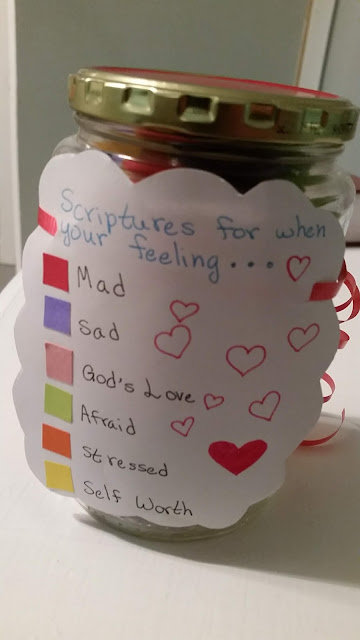 Scriptures for when
your feeling...
Mad
sad
God's Love
Afraid
stressed
Self Worth